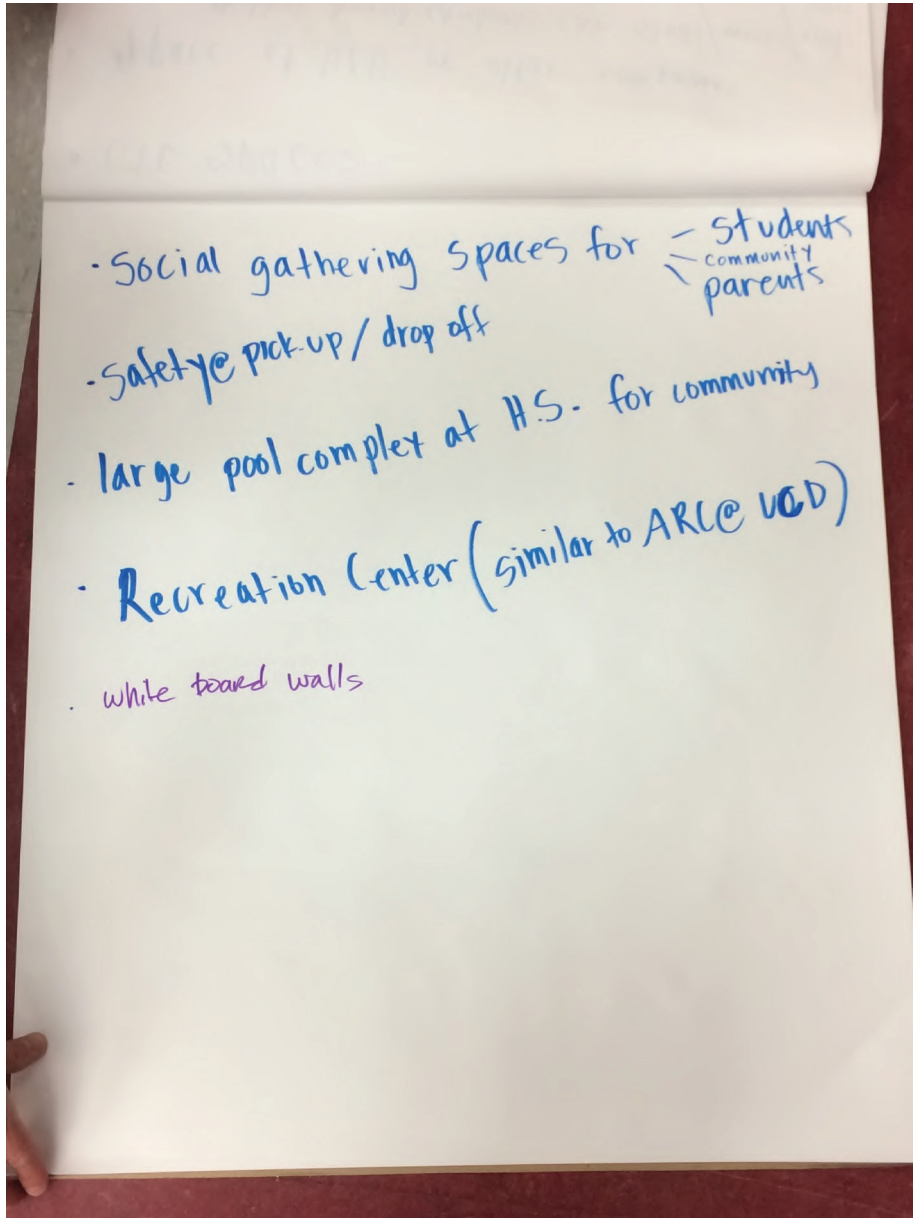 · Social gathering spaces for - students
- community
\ parents
· Safety @ pick-up / drop off
· large pool complex at H.S. for community
· Recreation Center (similar to ARC @ UCD)
· white board walls